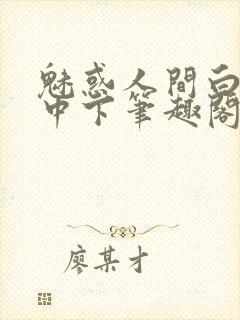 魅惑人間白
中下筆趣閣
廖某才